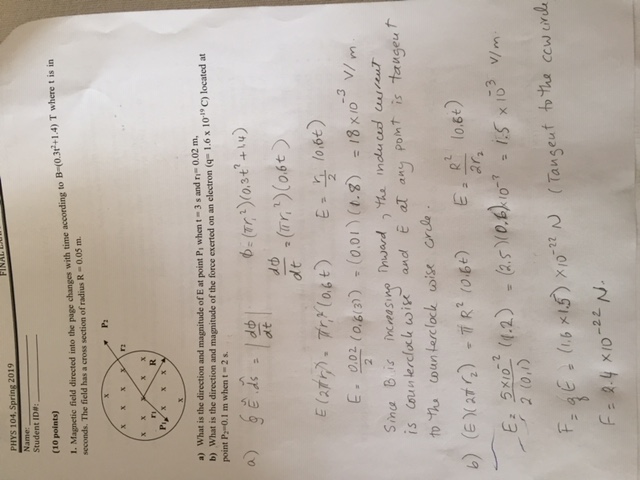 FINAL
PHYS 104, Spring 2019
Name:
Student ID#:
(10 points)
1. Magnetic field directed into the page changes with time according to B=(0.3t²+1.4) T where t is in
seconds. The field has a cross section of radius R = 0.05 m.
x P₂
x x x x r₂
x x x x
r₁ R
P₁ x x x x
x
a) What is the direction and magnitude of E at point P₁ when t = 3 s and r₁= 0.02 m,
b) What is the direction and magnitude of the force exerted on an electron (q= 1.6 x 10⁻¹⁹ C) located at
point P₂=0.1 m when t = 2 s.
a) ∮ E . ds = |dϕ/dt| ϕ = (πr₁²)(0.3t² + 1.4)
dϕ/dt = (πr₁²)(0.6t)
E(2πr₁) = πr₁²(0.6t) E = r₁/2 (0.6t)
E = 0.02/2 (0.6(3)) = (0.01)(1.8) = 18 x 10⁻³ V/m.
Since B is increasing inward, the induced current
is counterclock wise and E at any point is tangent
to the counterclock wise circle.
b) (E)(2πr₂) = πR²(0.6t) E = R²/2r₂ (0.6t)
E = 5x10⁻²/2(0.1) (1.2) = (2.5)(0.6)x10⁻³ = 1.5 x 10⁻³ V/m.
F = qE = (1.6 x 1.5) x 10⁻²² N (Tangent to the ccw circle
F = 2.4 x 10⁻²² N.